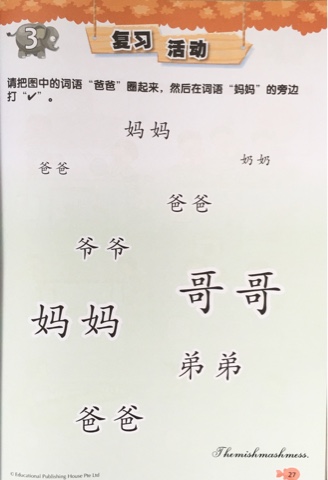 3
复习 活动
请把图中的词语“爸爸”圈起来，然后在词语“妈妈”的旁边
打“✔”。
妈妈
爸爸
奶奶
爸爸
爷爷
哥哥
妈妈
弟弟
爸爸
Themishmashmess.
© Educational Publishing House Pte Ltd
27